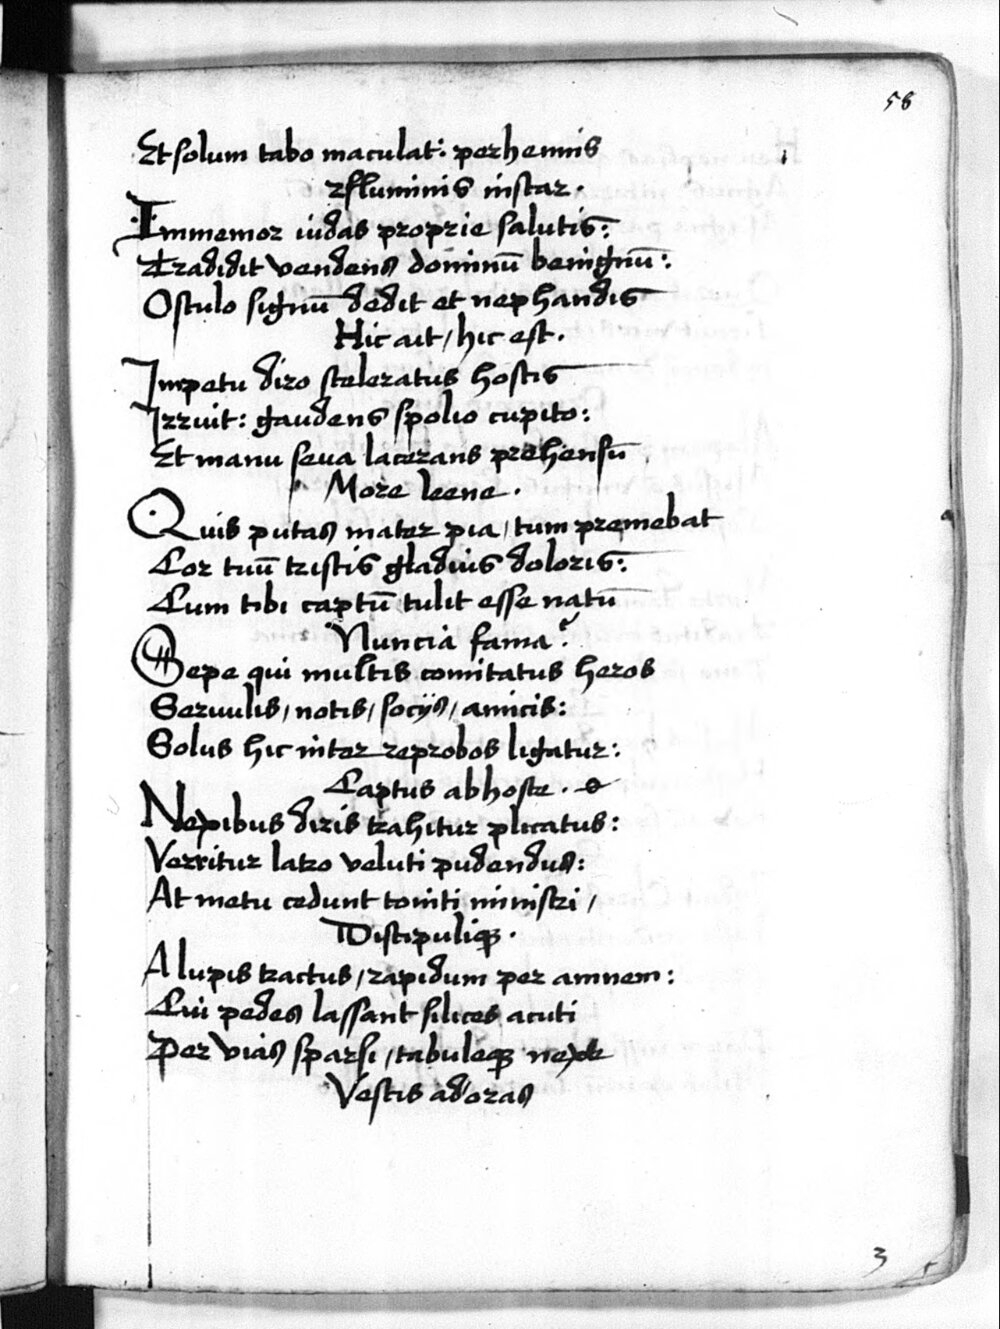 58
Et solum tabo maculat: perhennis
fluminis instar.
Immemor iudas proprie salutis:
Tradidit vendens dominū benignū:
Osculo signū dedit et nephandis
Hic ait / hic est.
Impetu diro sceleratus hostis
Irruit: gaudens spolio cupito:
Et manu seua lacerans prehensū
More leene.
Quis putas mater pia / tum premebat
Cor tuū tristis gladius doloris:
Cum tibi captū tulit esse natū
Nuncia fama?
Sepe qui multis comitatus heros
Seruulis / notis / socijs / amicis:
Solus hic inter reprobos ligatur:
Captus ab hoste.
Nexibus diris trahitur plicatus:
Verritur latro veluti pudendus:
At metu cedunt comiti ministri /
Discipuliq.
A lupis tractus / rapidum per amnem:
Cui pedes lassant silices acuti
Per vias sparsi / tabuleq nexe
Vestis ad oras
3